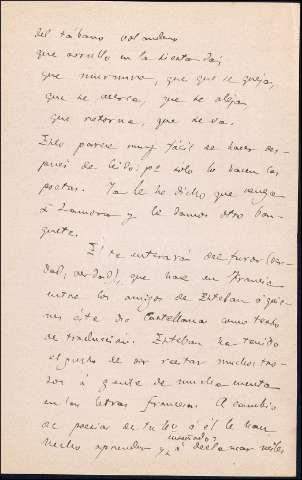 del tábano volandero
que arrulla en la siesta, da,
que murmura, que que se queja,
que se acerca, que se aleja
que retorna, que se va.
Esto parece muy fácil de hacer des-
pués de leido; pero sólo lo hacen los
poetas. Ya le he dicho que venga
á Zamora y le damos otro ban-
quete.
Él te enterará del furor (ver-
dad, verdad), que hace en Francia
entre los amigos de Esteban á quie-
nes éste dio Castellana como texto
de traducción. Esteban ha tenido
el gusto de oir recitar muchos tro-
zos á gente de mucha cuenta
en las letras francesas. A cambio
de poesías de tu libro á él le han
enseñado
hecho aprender y á declamar